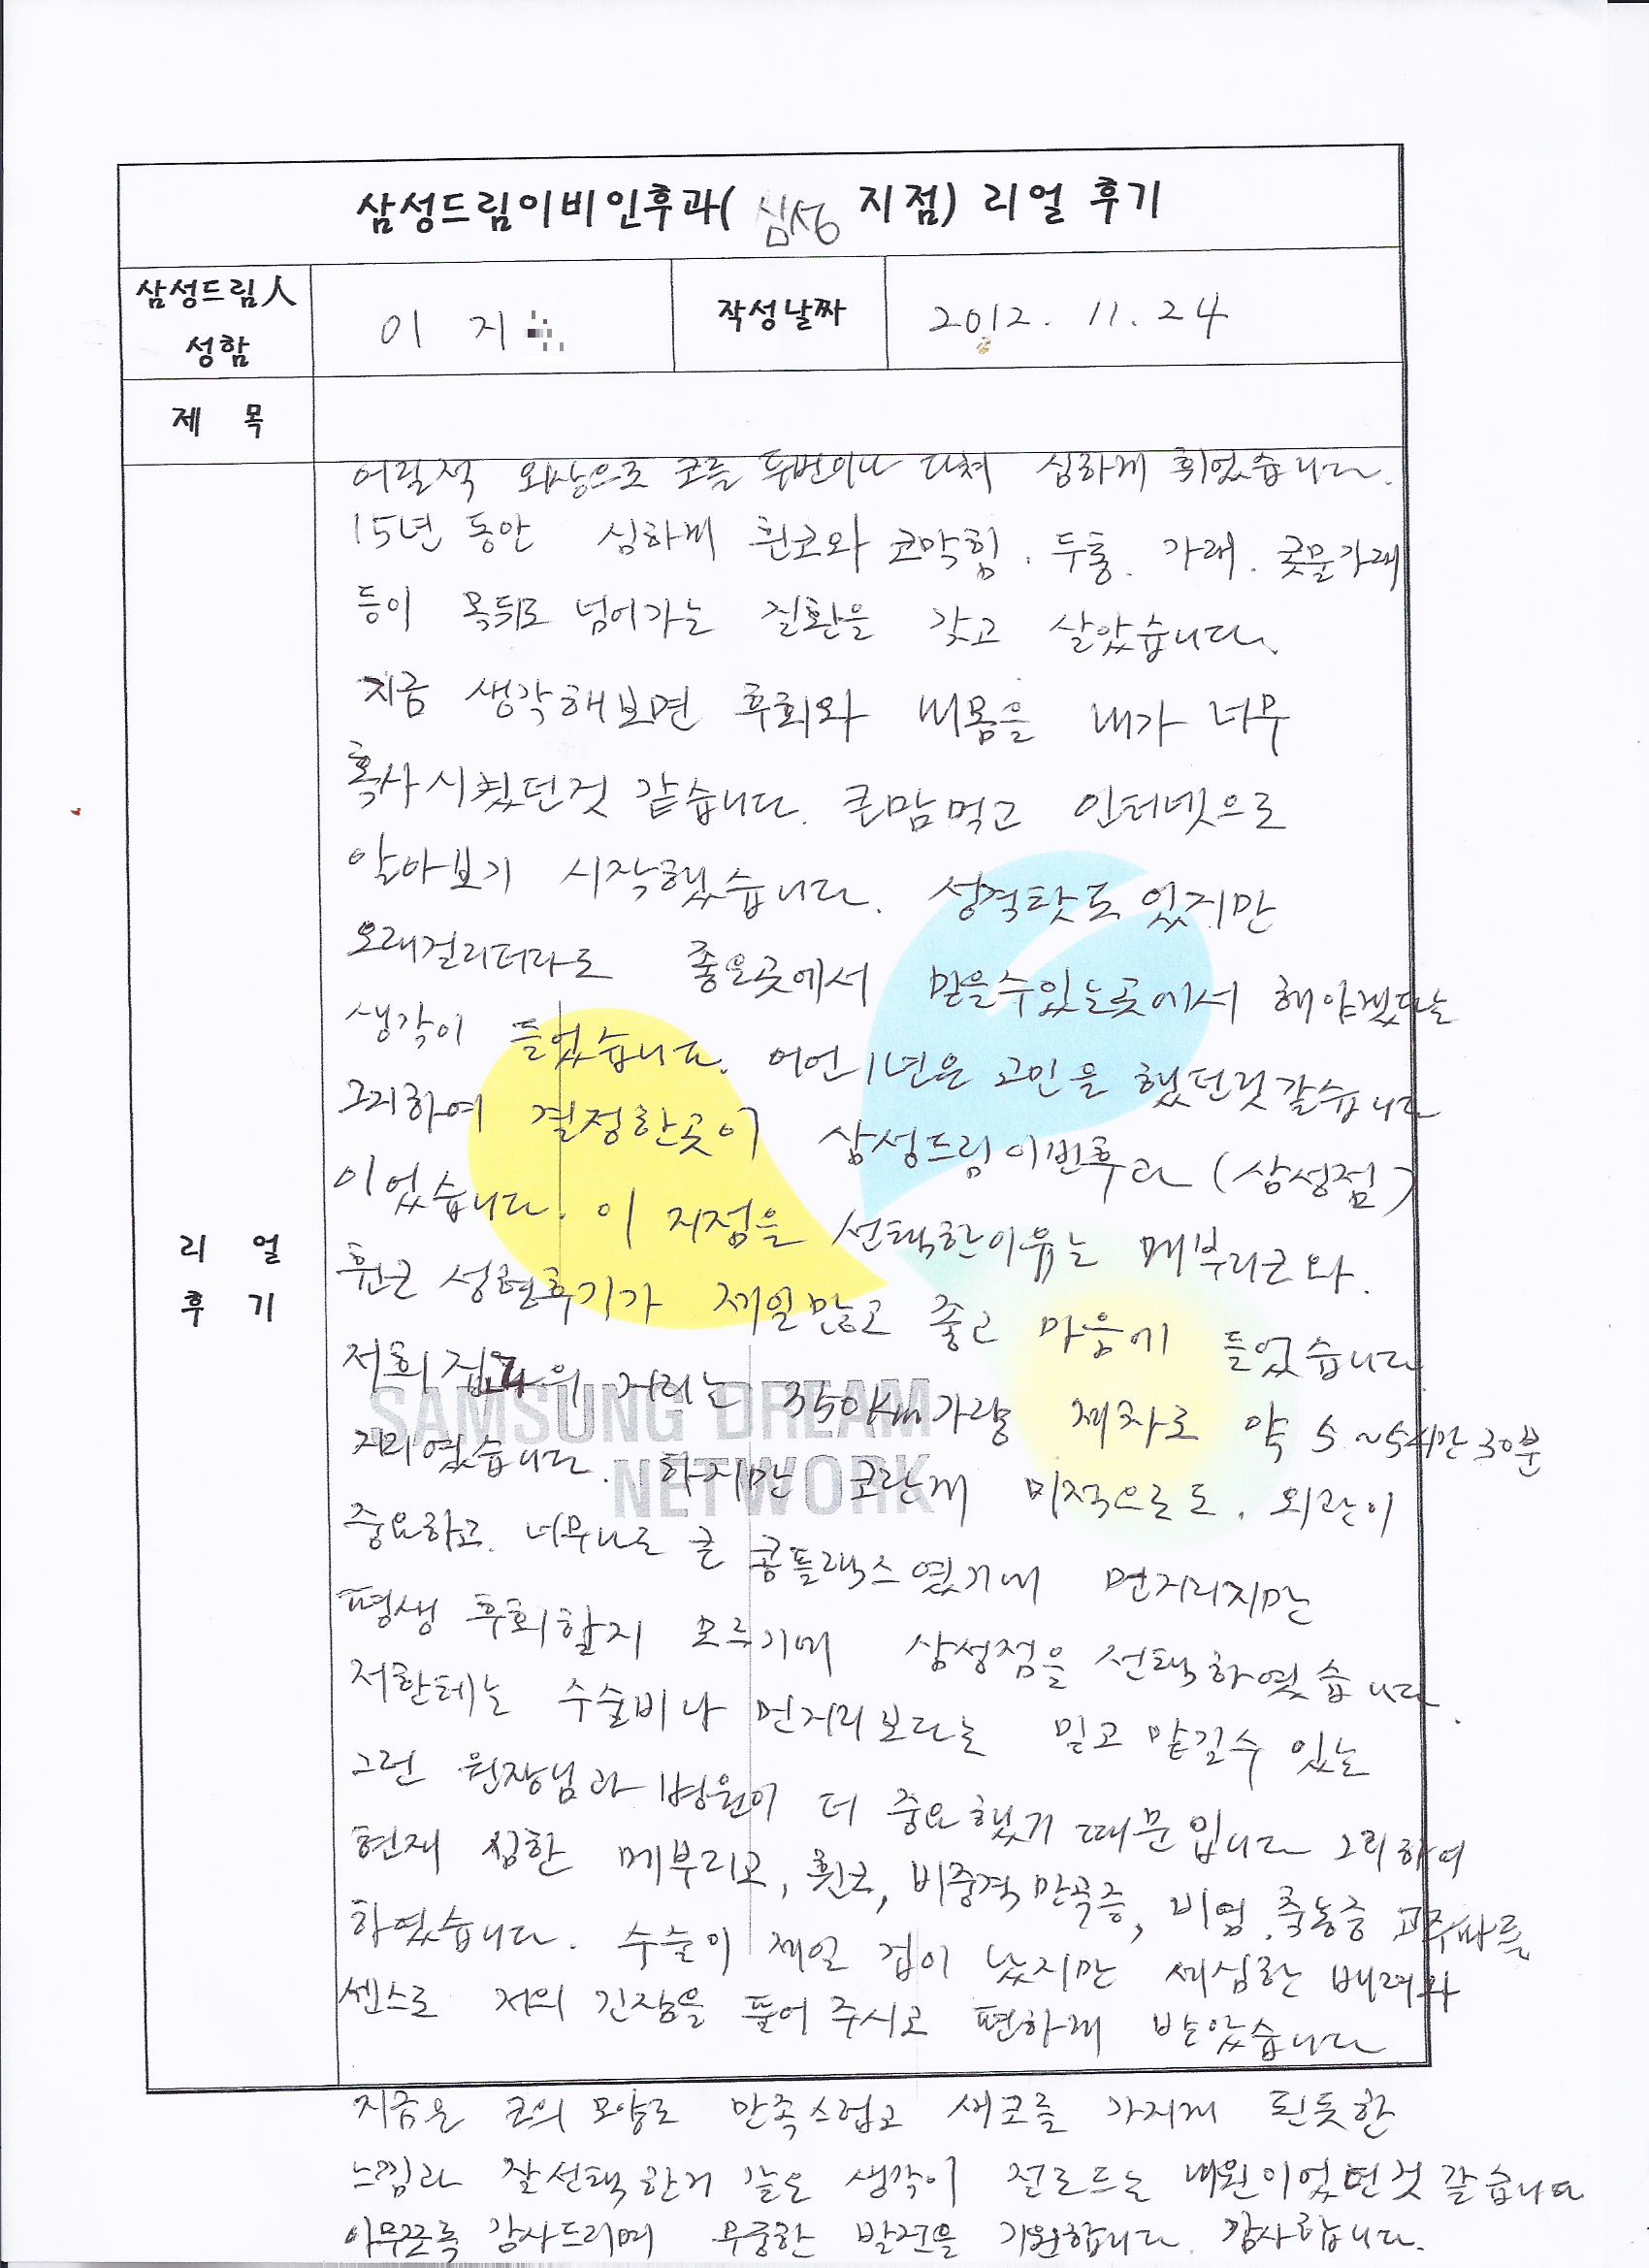 삼성드림이비인후과( 삼성 지점) 리얼 후기
삼성드림人 성함
이 지
작성날짜
2012. 11. 24
제 목
리 얼
후 기
어릴적 외상으로 코를 두번이나 다쳐 심하게 휘었습니다.
15년 동안 심하게 휜코와 코막힘. 두통. 가래. 콧물가래
등이 목뒤로 넘어가는 질환을 갖고 살았습니다.
지금 생각해보면 후회와 내몸을 내가 너무
혹사시켰던것 같습니다. 큰맘먹고 인터넷으로
알아보기 시작했습니다. 성격탓도 있지만
오래걸리더라도 좋은곳에서 믿을수있는곳에서 해야겠다는
생각이 들었습니다. 어언 1년은 고민을 했던것같습니다
그리하여 결정한곳이 삼성드림이빈후과 (삼성점)
이었습니다. 이 지점을 선택한이유는 메부리코와.
휜코 성형후기가 제일많고 좋고 마음에 들었습니다.
저희집과의 거리는 350km가량 제차로 약 5~5시간 30분
거리였습니다. 하지만 코란게 미적으로도. 외관이
중요하고. 너무나도 큰 콤플랙스였기에 먼거리지만
평생 후회할지 모르기에 삼성점을 선택하였습니다.
저한테는 수술비나 먼거리보다는 믿고 맡길수 있는
그런 원장님과 병원이 더 중요했기 때문입니다 그리하여
현재 심한 메부리코, 휜코, 비중격만곡증, 비염.축농증 고주파를
하였습니다. 수술이 제일 겁이 났지만 세심한 배려와
쎈스로 저의 긴장을 풀어 주시고 편하게 받았습니다
지금은 코의 모양도 만족스럽고 새코를 가지게 된듯한
느낌과 잘선택한거 같은 생각이 절로드는 내원이었던것 같습니다
아무쪼록 감사드리며 무궁한 발전을 기원합니다. 감사합니다.
SAMSUNG DREAM
NETWORK